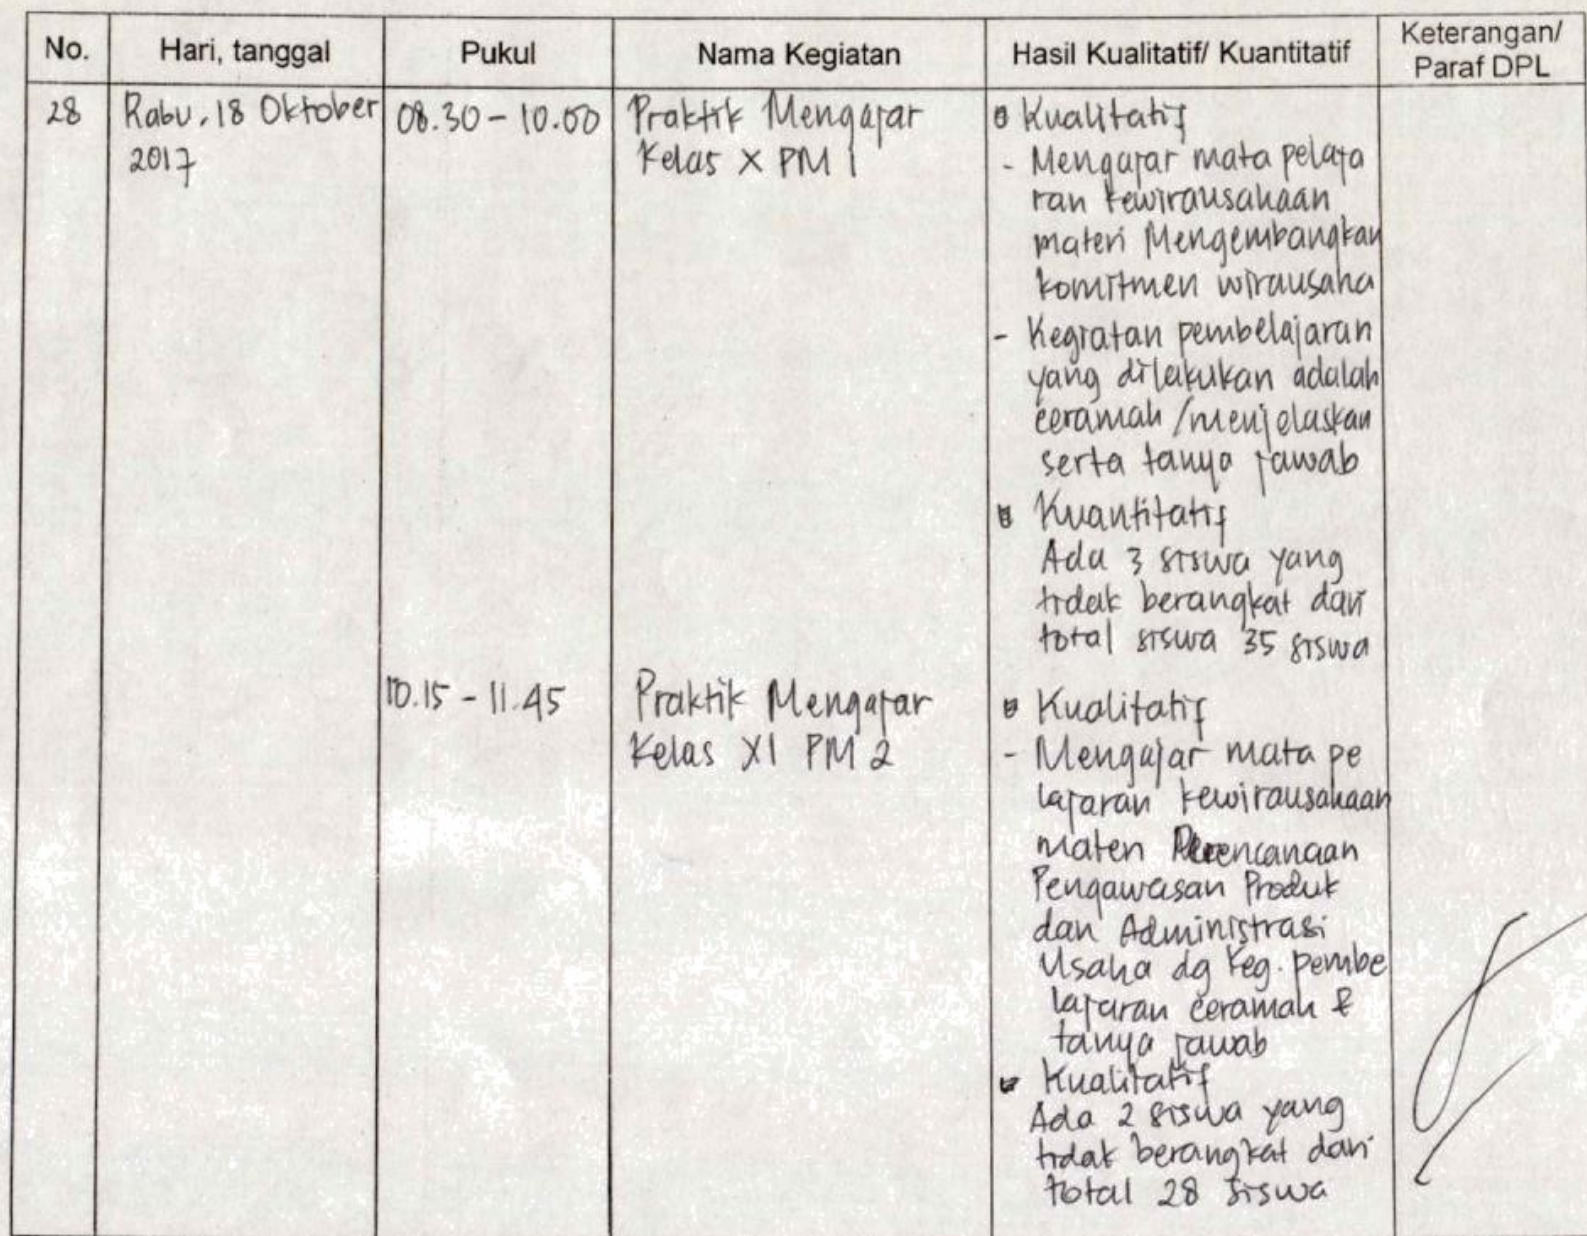 No. Hari, tanggal Pukul Nama Kegiatan Hasil Kualitatif/ Kuantitatif Keterangan/
Paraf DPL
28 Rabu, 18 Oktober 08.30 - 10.00 Praktik Mengajar Kualitatif
2017 Kelas X PM 1 - Mengajar mata pelaja
ran kewirausahaan
materi Mengembangkan
komitmen wirausaha
- Kegiatan pembelajaran
yang dilakukan adalah
ceramah / menjelaskan
serta tanya jawab
Kuantitatif
Ada 3 siswa yang
tidak berangkat dari
total siswa 35 siswa
10.15 - 11.45 Praktik Mengajar Kualitatif
Kelas XI PM 2 - Mengajar mata pe
lajaran kewirausahaan
materi Perencanaan
Pengawasan Produk
dan Administrasi
Usaha dg keg. pembe
lajaran ceramah &
tanya jawab
Kualitatif
Ada 2 siswa yang
tidak berangkat dari
total 28 siswa